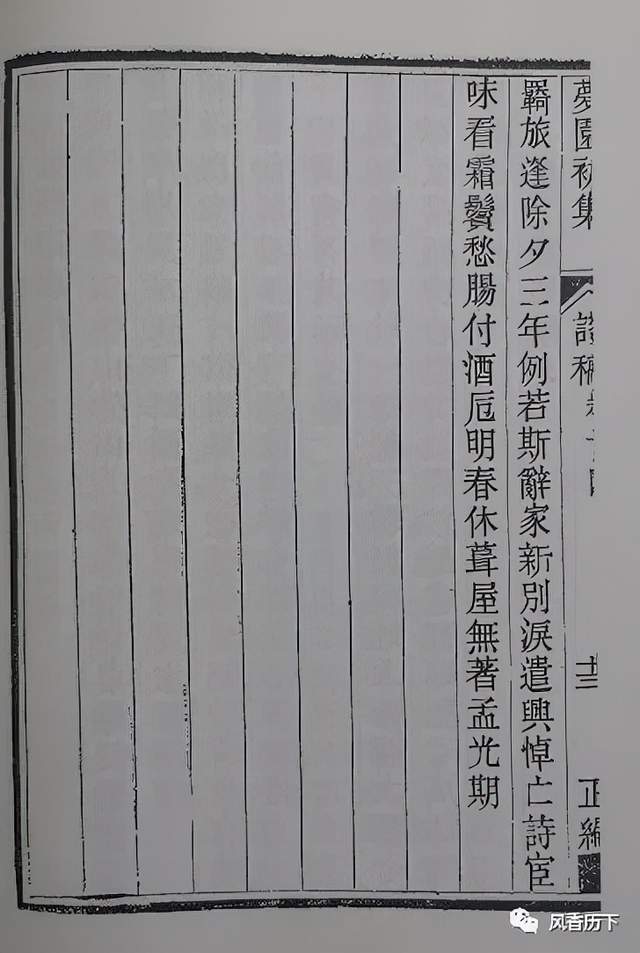 夢園初集
詩稿卷 十三 正編
羇旅逢除夕三年例若斯辭家新別淚遣興悼亡詩宦
味看霜鬢愁腸付酒卮明春休葺屋無著孟光期
风香历下